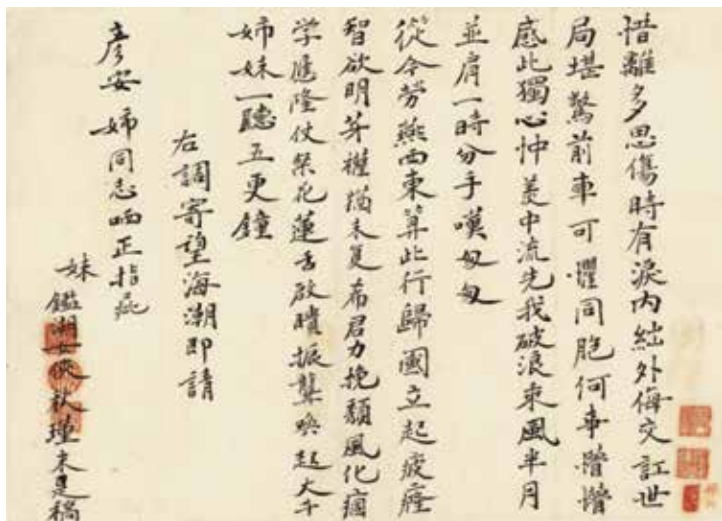 惜離多思傷時有淚內絀外侮交訌世
局堪驚前車可懼同胞何事懵懵
感此獨心忡羨中流先我破浪乘風半月
並肩一時分手嘆匆匆
從今勞燕西東算此行歸國立起疲癃
智欲明芽權猶未复希君力挽頹風化痼
学應隆仗粲花蓮舌啟聵振聾喚起大千
姉妹一聽五更鐘
右調寄望海潮即請
彥安姉同志哂正指疵
妹
鑑湖女俠秋瑾未是稿